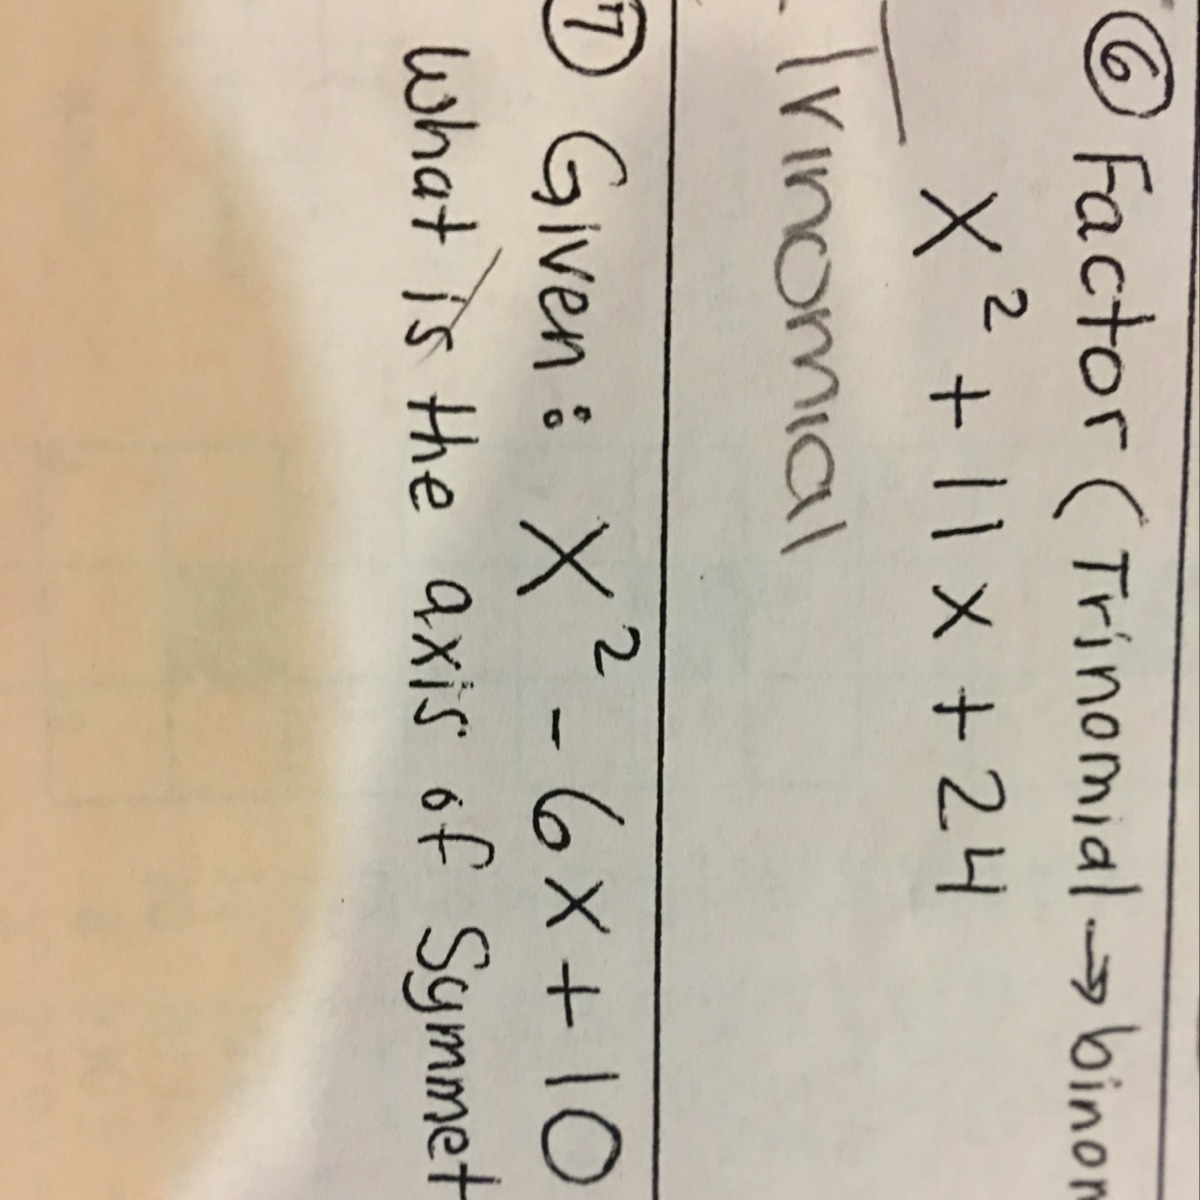 ⑥ Factor (Trinomial → binom
x² + 11x + 24
Trinomial
⑦ Given: x² - 6x + 10
What is the axis of Symmet